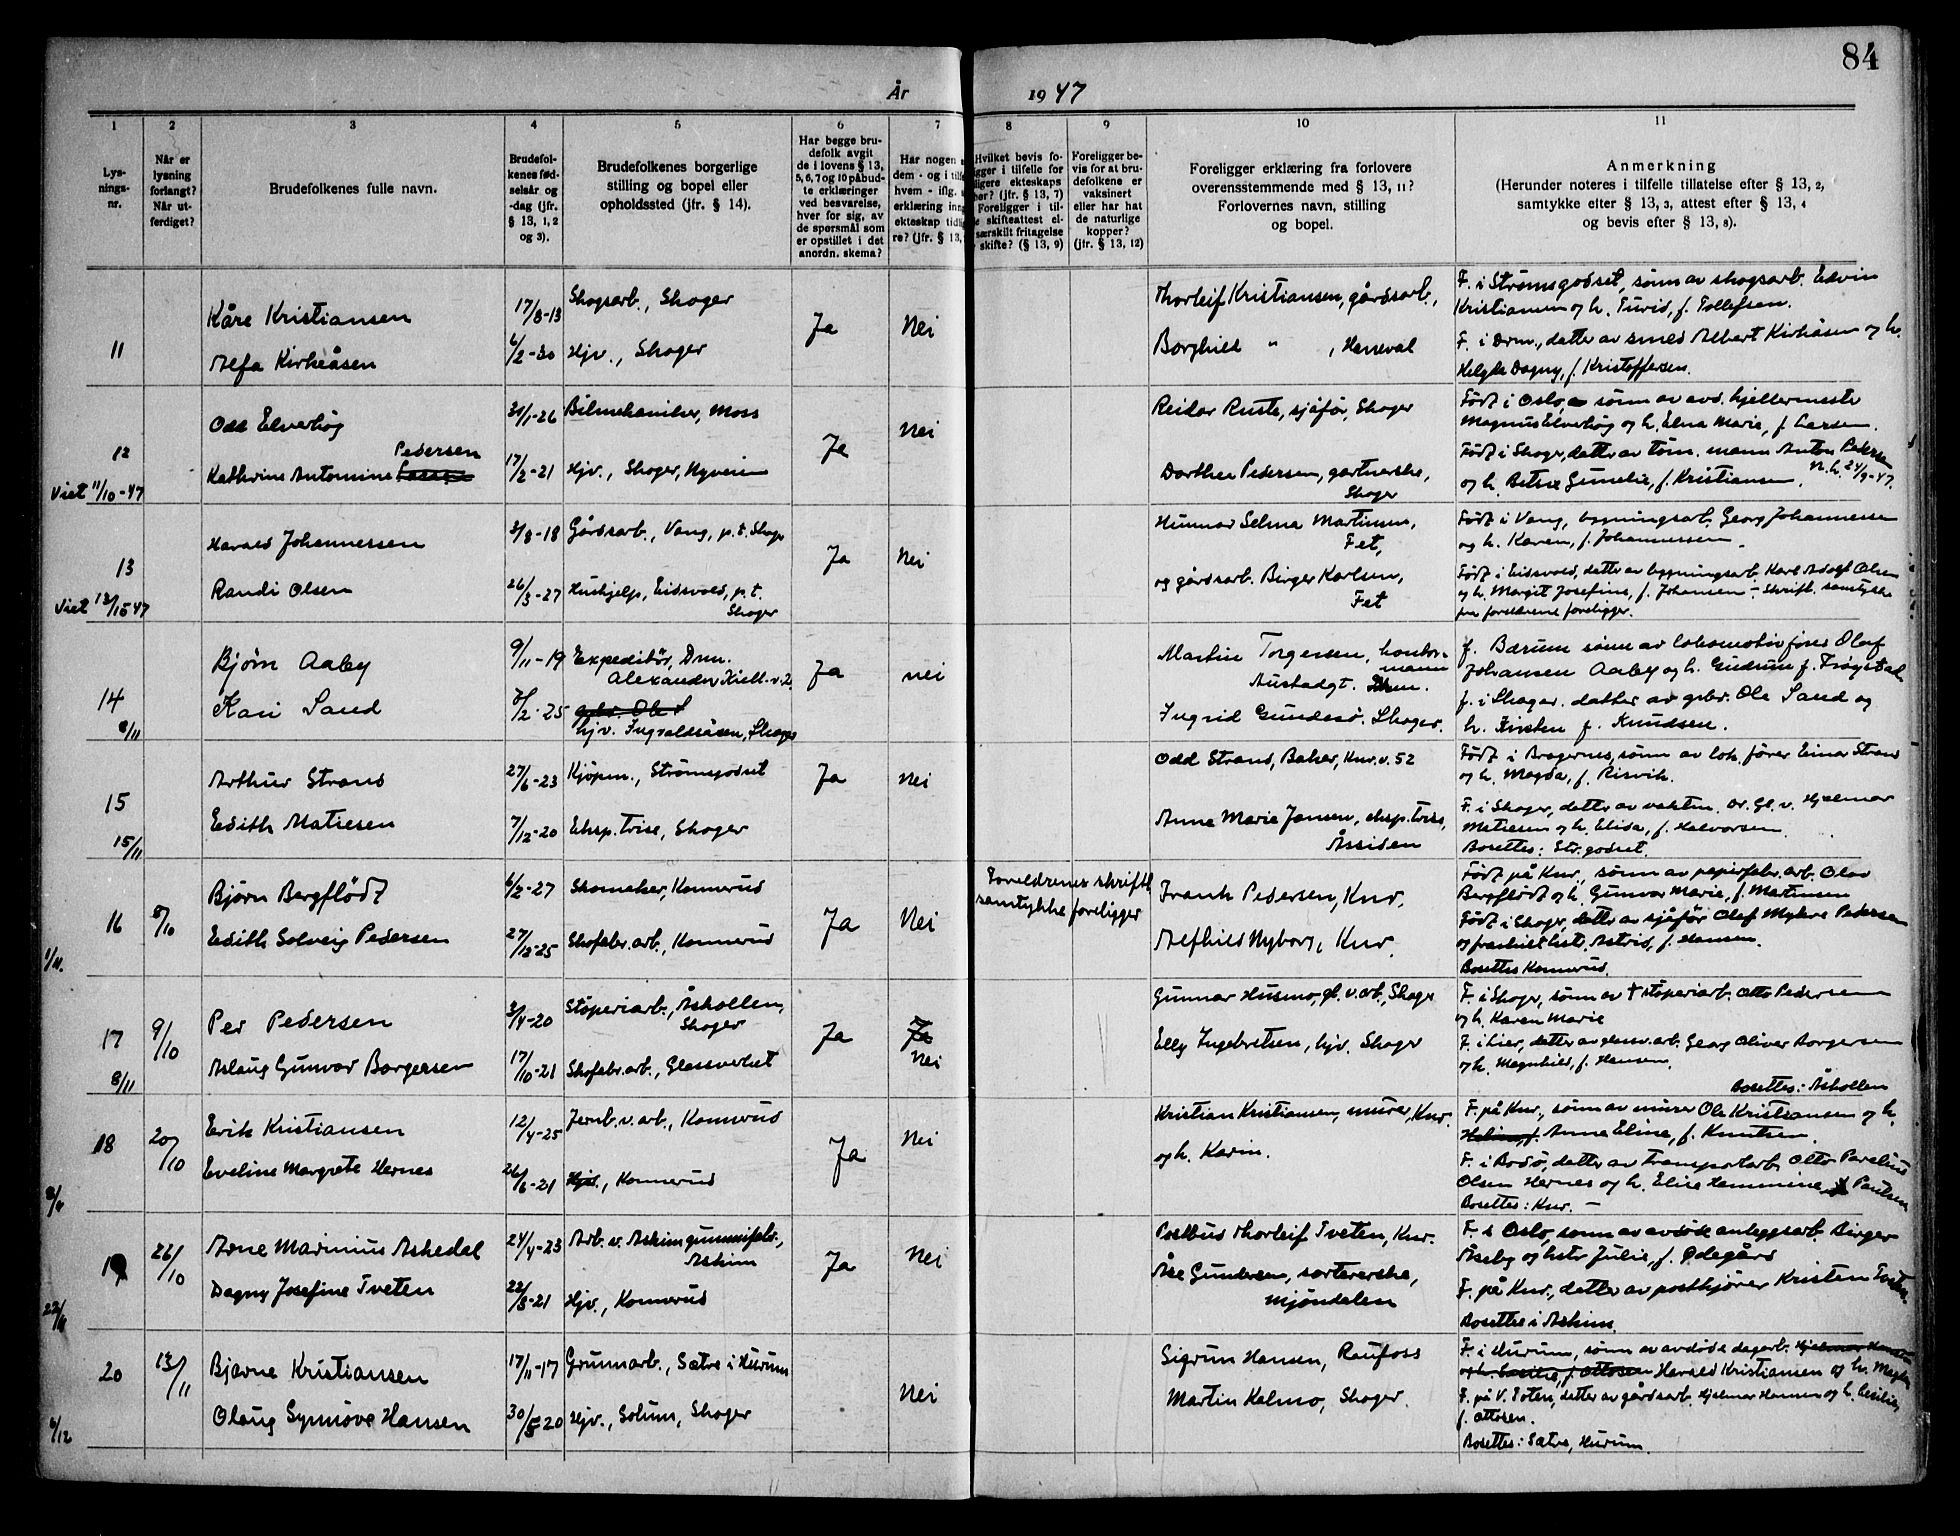 84
År 1947
1 2 3 4 5 6 7 8 9 10 11
Lys-
nings-
nr.
Når er
lysning
forlangt?
Når ut-
ferdiget?
Brudefolkenes fulle navn.
Brudefol-
kenes fød-
selsår og
-dag (jfr.
§ 13, 1, 2
og 3).
Brudefolkenes borgerlige
stilling og bopel eller
opholdssted (jfr. § 14).
Har begge bru-
defolk avgit
de i lovens § 13,
5, 6, 7 og 10 påbud-
te erklæringer
ved besvarelse,
hver for sig, av
de spørsmål som
er opstillet i det
anordn. skema?
Har nogen
dem - og i tilf
hvem - iflg.
erklæring inn
ekteskap tidli
re? (jfr. § 13,
Hvilket bevis fo-
ligger i tilfelle for
ligere ekteskaps
her? (jfr. § 13, 7)
Foreligger i til-
e skifteattest el-
særskilt fritagelse
skifte? (§ 13, 9)
Foreligger be-
vis for at bru-
defolkene er
vaksinert
eller har hat
de naturlige
kopper?
(jfr. § 13, 12)
Foreligger erklæring fra forlovere
overensstemmende med § 13, 11?
Forlovernes navn, stilling
og bopel.
Anmerkning
(Herunder noteres i tilfelle tillatelse efter § 13, 2,
samtykke efter § 13, 3, attest efter § 13, 4
og bevis efter § 13, 8).
11
Kåre Kristiansen
17/8-13
Skogsarb., Skoger
Ja
Nei
Thorleif Kristiansen, gårdsarb.,
F. i Strømsgodset, sønn av skogsarb. Edvin
Kristiansen og h. Turid, f. Tollefsen.
Alfa Kirkeåsen
6/2-20
Hjv., Skoger
Borghild " , Heneval
F. i Drm., datter av smed Albert Kirkåsen og h.
Helga Dagny, f. Kristoffersen.
12
Viet 11/10-47
Odd Elverhøg
31/1-26
Bilmekaniker, Moss
Ja
Nei
Reidar Ruste, sjåfør, Skoger
Født i Oslo, sønn av avd. hjellermester
Magnus Elverhøg og h. Elna Marie, f. Larsen.
Pedersen
Kathrine Antonmine
17/2-21
Hjv., Skoger, Nyveien
Dorthea Pedersen, gartnerske,
Skoger
Født i Skoger, datter av tøm. mann Anton Pedersen
og h. Betsie Gunelie, f. Kristiansen. N.h. 24/9-47.
13
Viet 12/10 47
Harald Johannessen
3/8-18
Gårdsarb., Vang, p.t. Skoger
Ja
Nei
Hunnar Selma Martinsen,
Fet,
Født i Vang, bygningsarb. Georg Johannessen
og h. Karen, f. Johannessen.
Randi Olsen
26/3-27
Hushjelp, Eidsvold, p.t.
Skoger
og gårdsarb. Birger Karlsen,
Fet
Født i Eidsvold, datter av bygningsarb. Karl Adolf Olsen
og h. Margit Josefine, f. Johansen - Skriftl. samtykke
fra foreldrene foreligger.
14
8/11
Bjørn Aaby
9/11-19
Expeditør, Drm.
Alexander Kiell. v. 2.
Ja
nei
Martin Torgersen, kontor-
mann
Austadgt. Drm.
f. Bærum sønn av lokomotivfører Olaf
Johansen Aaby og h. Gudrun f. Frøystad
Kari Sand
7/2-25
gbr. Ole S
hjv. Ingvaldsåsen, Skoger
Ingrid Gundesø. Skoger.
f. i Skoger. datter av gbr. Ole Sand og
h. Kirsten f. Knudsen.
15
15/11
Arthur Strand
27/6-23
Kjøpm., Strømsgodset
Ja
Nei
Odd Strand, Baker, Knr.v. 52
Født i Bragernes, sønn av lok. fører Einar Strand
og h. Magda, f. Risvik.
Edith Matiesen
7/12-20
Eksp. trise, Skoger
Anne Marie Jansen, eksp.trise,
Åssiden
F. i Skoger, datter av vaktm. Dr. Gl. v. Hjalmar
Matiesen og h. Elida, f. Halvorsen.
Bosettes: Str.godset.
16
1/11.
8/10
Bjørn Bergflødt
6/2-27
Skomaker, Konnerud
Ja
Nei
Foreldrenes skriftl.
samtykke foreligger
Frank Pedersen, Knr.
Født på Knr., sønn av papirfabr. arb. Olav
Bergflødt og h. Gunvor Marie, f. Martinsen
Edith Solveig Pedersen
27/12-25
Skofabr. arb., Konnerud
Alfhild Nyborg, Knr.
Født i Skoger, datter av sjåfør Olaf Myhre Pedersen
og fraskilt hst. Astrid, f. Hansen.
Bosettes Konnerud.
17
8/11
9/10
Per Pedersen
3/4-20
Støperiarb., Åskollen,
Skoger
Ja
Ja
Nei
Gunnar Husmo, gl. v. arb., Skoger
F. i Skoger, sønn av † støperiarb. Otto Pedersen
og h. Karen Marie
Aslaug Gunvor Borgersen
17/10-21
Skofabr.arb., Glassverket
Elly Ingebretsen, hjv. Skoger
F. i Lier, datter av glassv. arb. Georg Oliver Borgersen
og h. Magnhild, f. Hansen.
Bosettes: Åskollen
18
8/11
20/10
Erik Kristiansen
12/4-25
Jernb. v. arb., Konnerud
Ja
Nei
Kristian Kristiansen, murer, Knr.
F. på Knr., sønn av murer Ole Kristiansen og h.
Anne Eline, f. Knutsen.
Eveline Margrete Hernes
26/6-21
Hjv., Konnerud
og h. Karin.
F. i Bodø, datter av transportarb. Otto Parelius
Olsen Hernes og h. Elise Hemmine, f. Paulsen
Bosettes: Knr. -
19
22/11
22/10
Arne Marinius Askedal
24/4-23
Arb. v. Askim gummifabr.,
Askim
Ja
Nei
Postbud Thorleif Tveten, Knr.
F. i Oslo, sønn av avdøde anleggsarb. Birger
Åseby og hstr Julie, f. Ødegård
Dagny Josefine Tveten
22/8-21
Hjv., Konnerud
Åse Gundersen, sorterske,
Mjøndalen
F. på Knr., datter av postkjører Kristen Tveten.
Bosettes i Askim.
20
6/12
13/11
Bjarne Kristiansen
17/11-17
Grunnarb., Sætre i Hurum
Nei
Sigrun Hansen, Raufoss
F. i Hurum, sønn av avdøde dagarb. Hjalmar Hansen
og h. Cecilie, f. Ottosen Harald Kristiansen og h. Magda
Olaug Synnøve Hansen
30/5-20
Hjv., Solum, Skoger
Martin Kalmo, Skoger.
F. på V. Toten, datter av gårdsarb. Hjalmar Hansen og h. Cecilie,
f. Ottosen.
Bosettes: Sætre, Hurum.